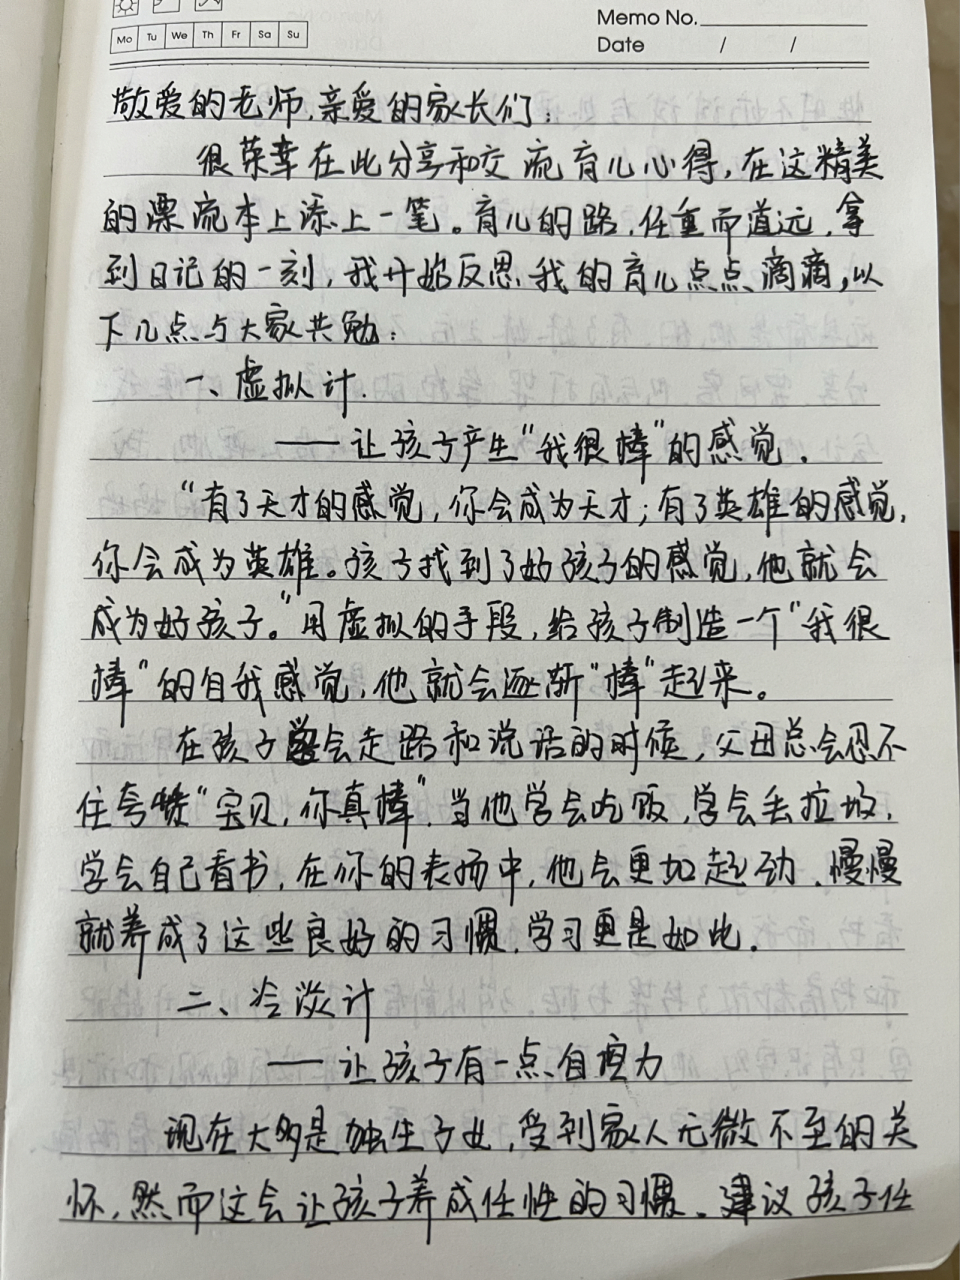 Mo Tu We Th Fr Sa Su
Memo No.
Date / /
敬爱的老师,亲爱的家长们:
很荣幸在此分享和交流育儿心得,在这精美
的漂流本上添上一笔。育儿的路,任重而道远,拿
到日记的一刻,我开始反思我的育儿点点滴滴,以
下几点与大家共勉:
一、虚拟计.
——让孩子产生“我很棒”的感觉.
“有了天才的感觉,你会成为天才;有了英雄的感觉,
你会成为英雄。孩子找到了好孩子的感觉,他就会
成为好孩子。”用虚拟的手段,给孩子制造一个“我很
棒”的自我感觉,他就会逐渐“棒”起来。
在孩子学会走路和说话的时候,父母总会忍不
住夸赞“宝贝,你真棒”,当他学会吃饭,学会丢垃圾,
学会自己看书,在你的表扬中,他会更加起劲,慢慢
就养成了这些良好的习惯,学习更是如此.
二、冷淡计
——让孩子有一点自理力
现在大多是独生子女,受到家人无微不至的关
怀,然而这会让孩子养成任性的习惯。建议孩子任